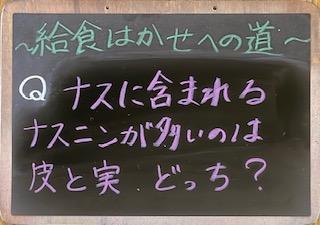 ～給食はかせへの道～
Q ナスに含まれる
ナスニンが多いのは
皮と実、どっち？